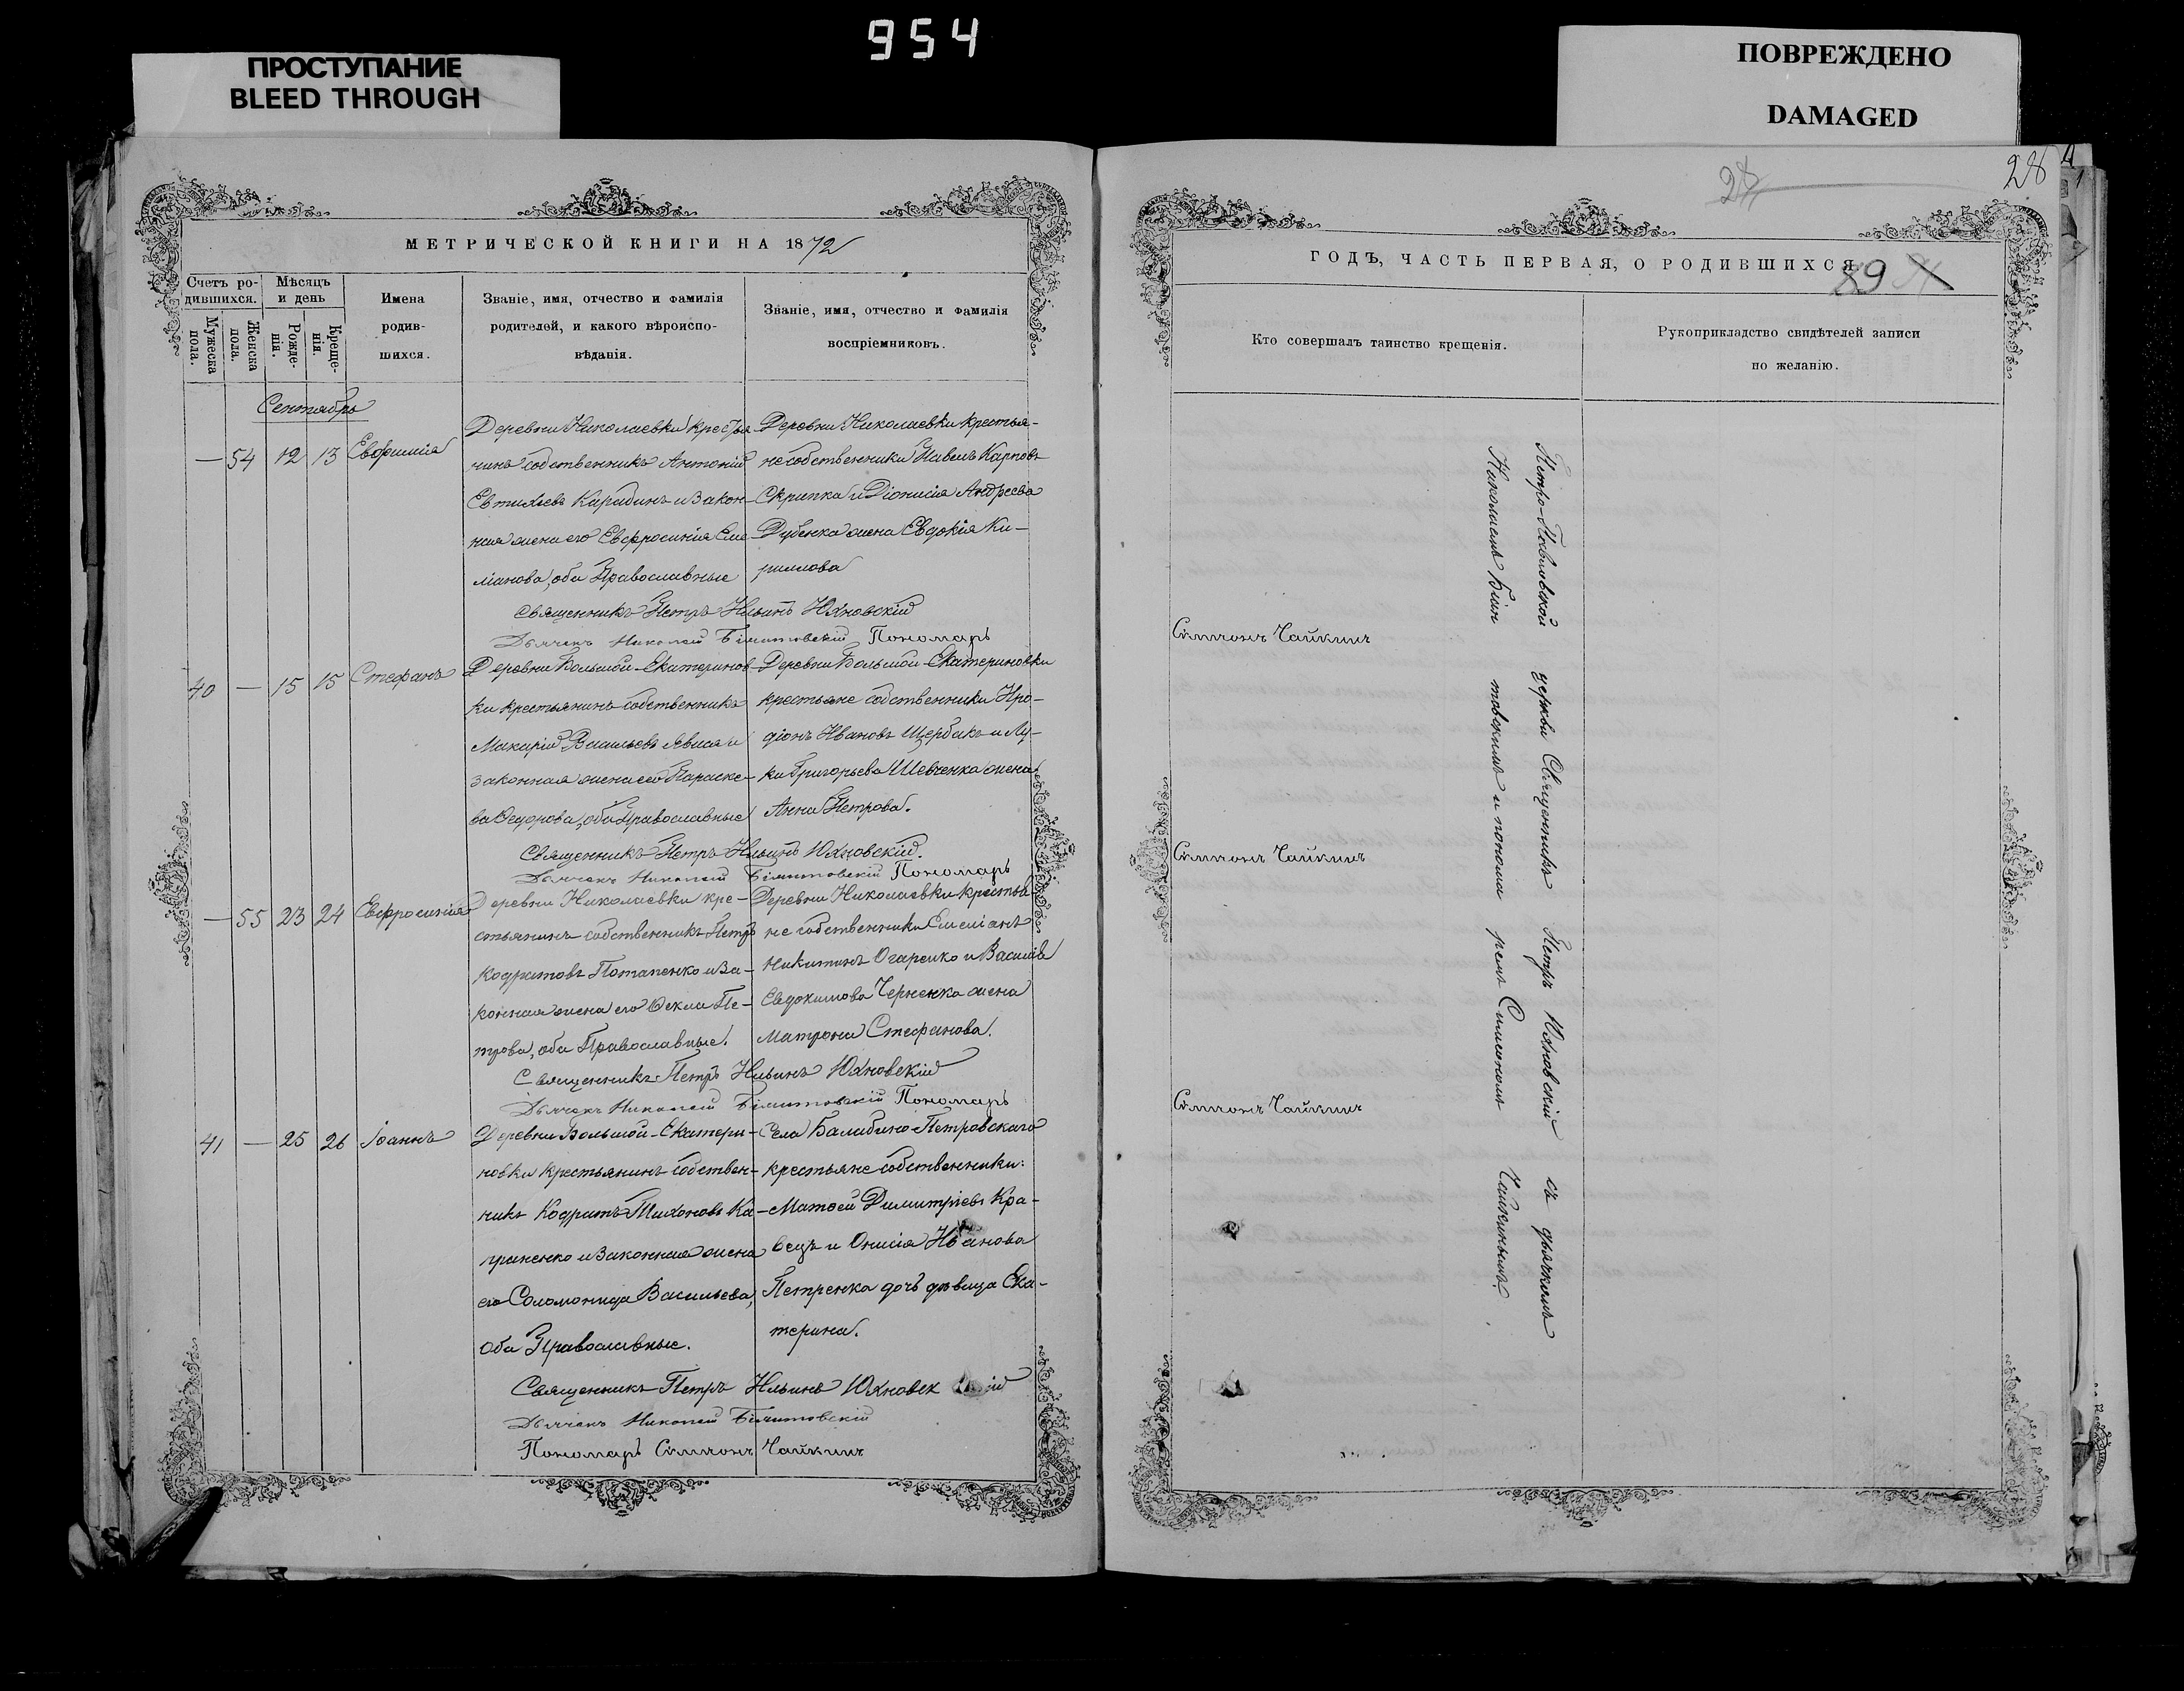 954
ПРОСТУПАНИЕ
BLEED THROUGH
ПОВРЕЖДЕНО
DAMAGED
МЕТРИЧЕСКОЙ КНИГИ НА 1872
Счетъ родившихся.
Мужеска пола.
Женска пола.
Мѣсяцъ и день
Рожденія.
Крещенія.
Имена родившихся.
Званіе, имя, отчество и фамилія родителей, и какого вѣроисповѣданія.
Званіе, имя, отчество и фамилія воспріемниковъ.
Сентябрь
— 54 12 13 Евфимія
Деревни Николаевки крестья
нинъ собственникъ Антоній
Евтихіевъ Карабинъ и закон-
ная жена его Евфросинія Еме
ліанова, оба Православные
Деревни Николаевки крестья-
не собственники Павелъ Карповъ
Скрипка и Діонисія Андреева
Дубенка жена Евдокія Ки-
риллова
Священникъ Петръ Ильинъ Юхновскій
Дьячекъ Николай Пономарь
40 — 15 15 Стефанъ
Деревни Большой-Екатеринов-
ки крестьянинъ собственникъ
Макарій Васильевъ и
законная жена его Параске-
ва Ѳедорова, оба Православные
Деревни Большой-Екатериновки
крестьяне собственники Иро-
діонъ Ивановъ Щербакъ и Лу-
ки Григорьева Шевченка жена
Анна Петрова.
Священникъ Петръ Ильинъ Юхновскій.
Дьячекъ Николай Пономарь
— 55 23 24 Евфросинія
Деревни Николаевки кре-
стьянинъ собственникъ Петръ
Кодратовъ Потапенко и за-
конная жена его Ѳекла Пе-
трова, оба Православные.
Деревни Николаевки крестья
не собственники Емеліанъ
Никитинъ Огаренко и Василія
Евдокимова Черненка жена
Матрона Стефанова.
Священникъ Петръ Ильинъ Юхновскій
Дьячекъ Николай Пономарь
41 — 25 26 Іоаннъ
Деревни Большой-Екатери-
новки крестьянинъ собствен-
никъ Кодратъ Тихоновъ Ка-
граненко и законная жена
его Соломонида Васильева,
оба Православные.
Села Балабино-Петровскаго
крестьяне собственники:
Матѳей Димитріевъ Кра-
вецъ и Онисія Иванова
Петренка дочь дѣвица Ека-
терина.
Священникъ Петръ Ильинъ Юхновскій
Дьячекъ Николай
Пономарь Симеонъ Чайкинъ
28
28
ГОДЪ, ЧАСТЬ ПЕРВАЯ, О РОДИВШИХСЯ
89
Кто совершалъ таинство крещенія.
Рукоприкладство свидѣтелей записи по желанію.
Симеонъ Чайкинъ
Симеонъ Чайкинъ
Симеонъ Чайкинъ
Петро-Павловской церкви Священникъ Петръ Юхновскій съ дьячкомъ
Николаемъ и пономаремъ Симеономъ Чайкинымъ.